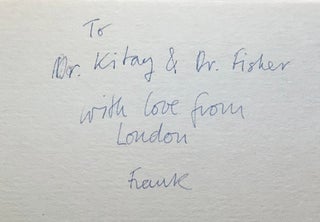 To
Dr. Kitay & Dr. Fisher
with love from
London
Frank